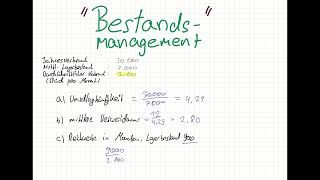 "Bestands-
management"
Jahresverbrauch 30.000
Mittl. Lagerbestand 7.000
Durchschnittlicher Verbrauch
(Stück pro Monat)
a) Umschlaghäufigkeit = 30000 / 7000 = 4,29
b) mittlere Verweildauer = 12 / 4,29 = 2,80
c) Reichweite in Monaten, Lagerbestand
9000